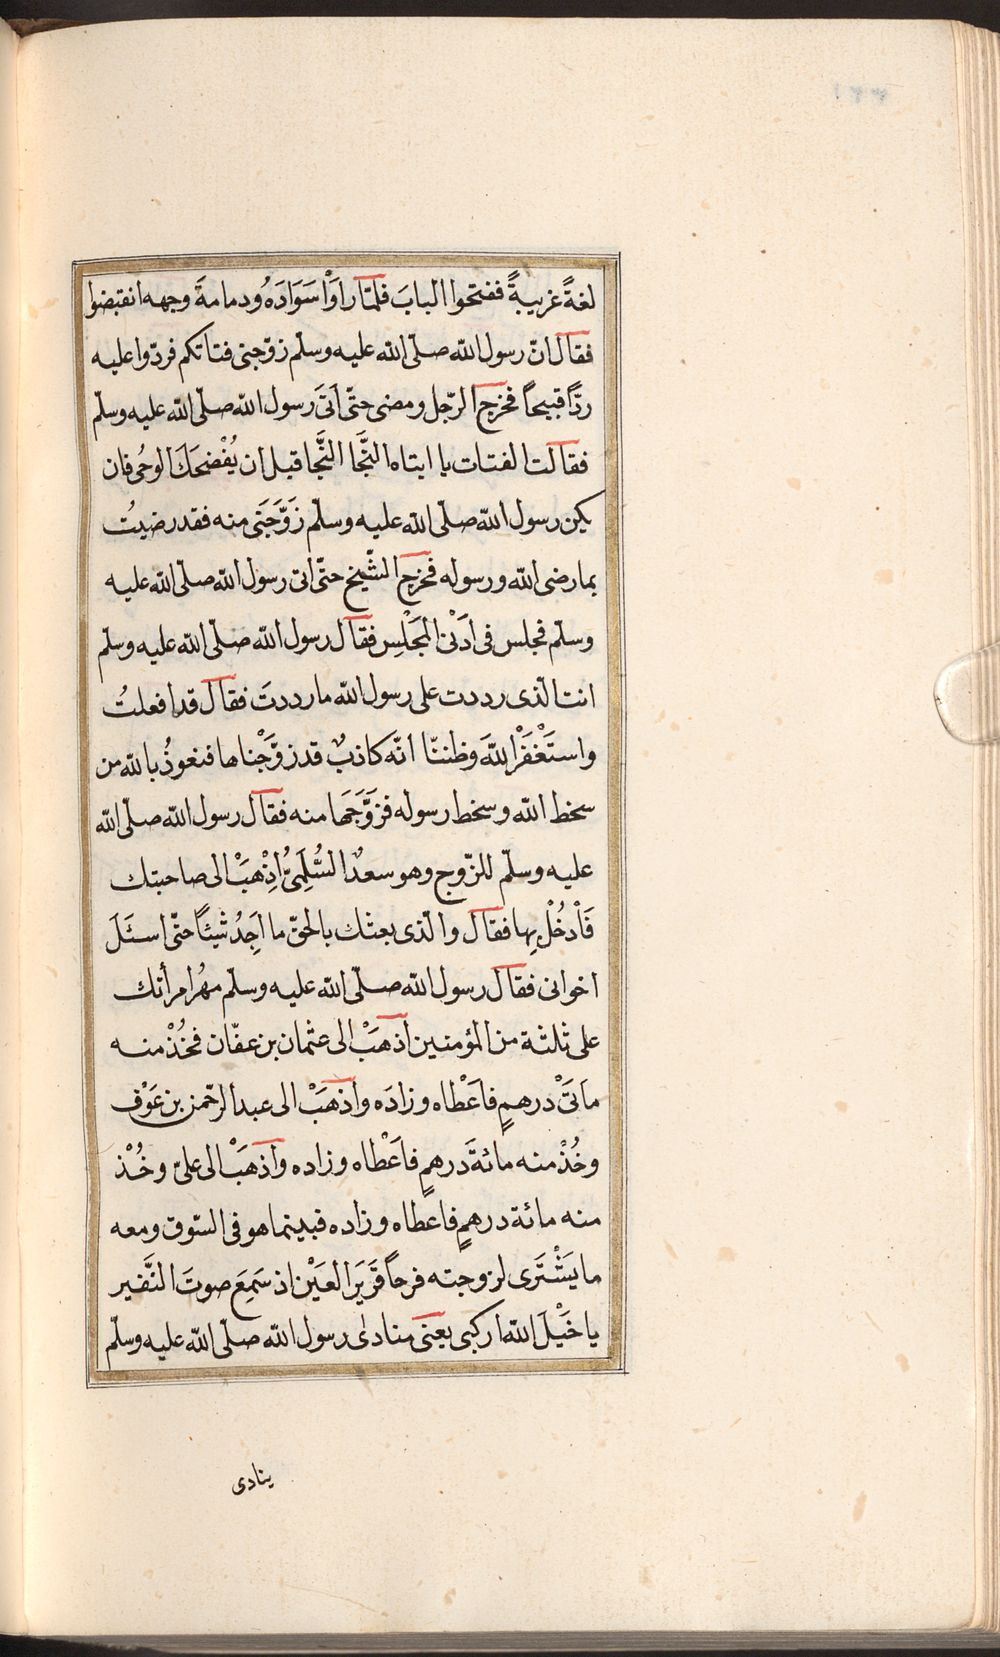 لغةً غريبةً ففتحوا الباب فلمّا رأوْا سَوَادَهُ ودمامةَ وجهه انقبضوا
فقال انّ رسول الله صلّى الله عليه وسلّم زوّجنى فتاتكم فردّوا عليه
ردّاً قبيحاً فخرج الرّجل ومضى حتّى اتَى رسول الله صلّى الله عليه وسلّم
فقالت الفتات يا ابتاه النَّجا النَّجا قبل ان يُفْضِحَكَ الوحى فان
يكن رسول الله صلّى الله عليه وسلّم زَوَّجَنى منه فقد رضيتُ
بما رضى الله ورسوله فخرج الشّيخ حتّى اتى رسول الله صلّى الله عليه
وسلّم فجلس فى أدْنَى المجْلِس فقال رسول الله صلّى الله عليه وسلّم
انت الّذى رددت على رسول الله ما رددتَ فقال قد افعلتُ
واستَغْفَرْ اللهَ وظننّا انّه كاذبٌ قد زوَّجْناها فنعوذُ بالله من
سخط الله وسخط رسوله فزوَّجَها منه فقال رسول الله صلّى الله
عليه وسلّم للزّوج وهو سعدٌ السُّلَمِىُّ اذْهَبْ الى صاحبتك
فَأدْخُلْ بِها فقال والّذى بعثك بالحقّ ما اَجِدُ شيئاً حتّى اسئَلَ
اخوانى فقال رسول الله صلّى الله عليه وسلّم مهرُ امرأتك
على ثلثة من المؤمنين اذهَبْ الى عثمان بن عفّان فخُذْ منه
مأتَىْ درهمٍ فاَعْطاه وزادَه واذهَبْ الى عبد الرّحمن بن عَوْف
وخُذْ منه مائةَ درهمٍ فاَعْطاه وزاده واذهَبْ الى علىّ وخُذْ
منه مائة درهمٍ فاعطاه وزاده فبينما هو فى السّوق ومعه
ما يَشْتَرى لزوجته فرحاً قَرِيرَ العَيْن اذ سَمِعَ صوتَ النَّفير
يا خَيْلَ الله اركبى يعنى منادى رسول الله صلّى الله عليه وسلّم
ينادى